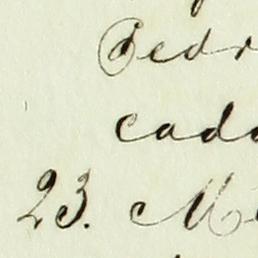 Pedr
cada
23. M